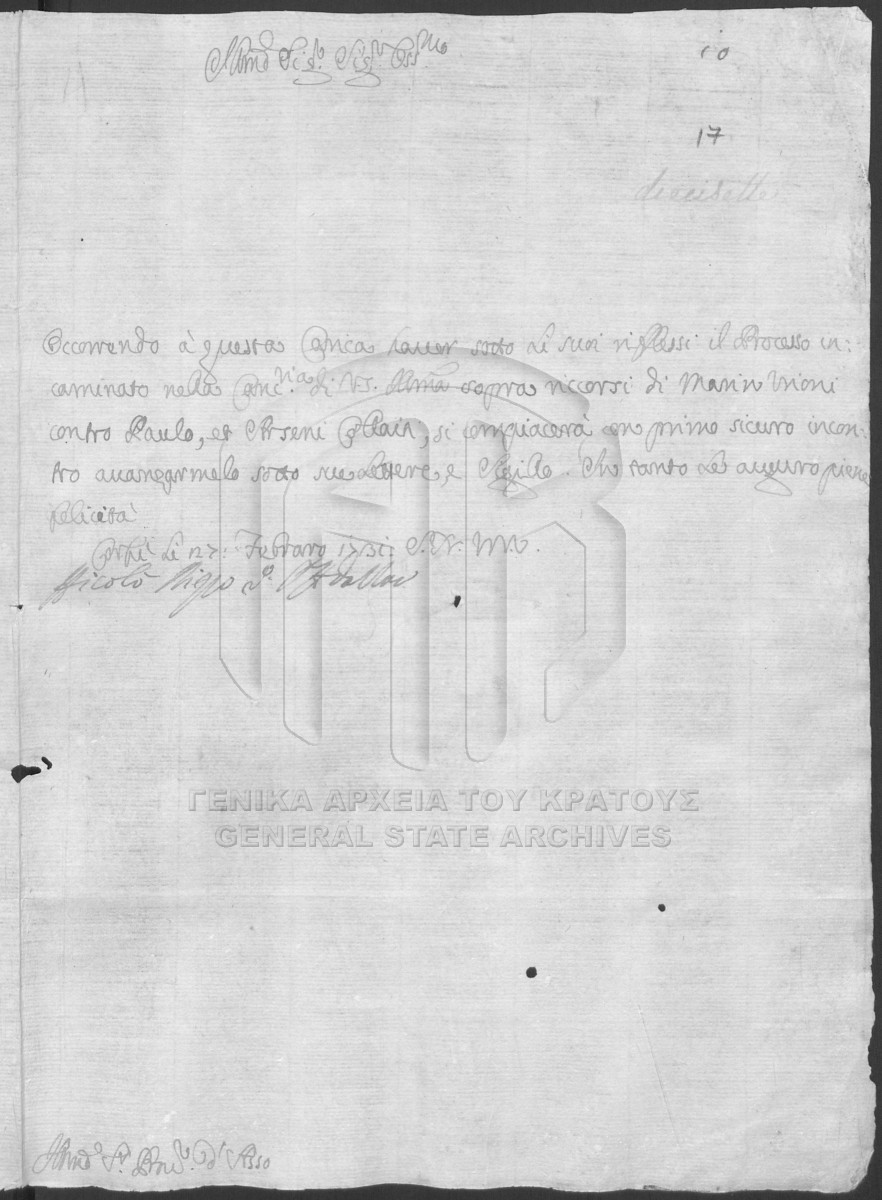 Illmo Sigr. Sigr. Oss.mo
10
17
diecisette
Occorrendo à questa Carica hauer sotto li suoi riflessi il Processo in:
caminato nella Canc.ria di V.S. Illma sopra riccorsi di Marin Vrioni
contro Paulo, et Arseni, si compiacerà con primo sicuro incon:
tro auanzarmelo sotto sue lettere, e Sigillo. Ch tanto le auguro piene
felicità
Corfù li 27: Febraro 1731: S. N.
Nicolò
Illmo Sr. Prov.r d'Asso
ΓΕΝΙΚΑ ΑΡΧΕΙΑ ΤΟΥ ΚΡΑΤΟΥΣ
GENERAL STATE ARCHIVES